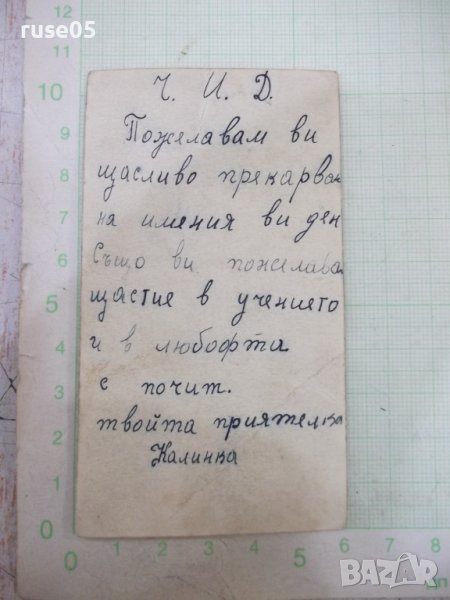 ruse05
Ч. И. Д.
Пожелавам ви
щасливо прекарван
на имения ви ден
Също ви пожелава
щастие в учението
и в любофта
с почит.
твойта приятелка
Калинка
10
9
8
7
6
5
4
3
2
1
0
0 1 2 3 4 5 6 7 8
BAZAR